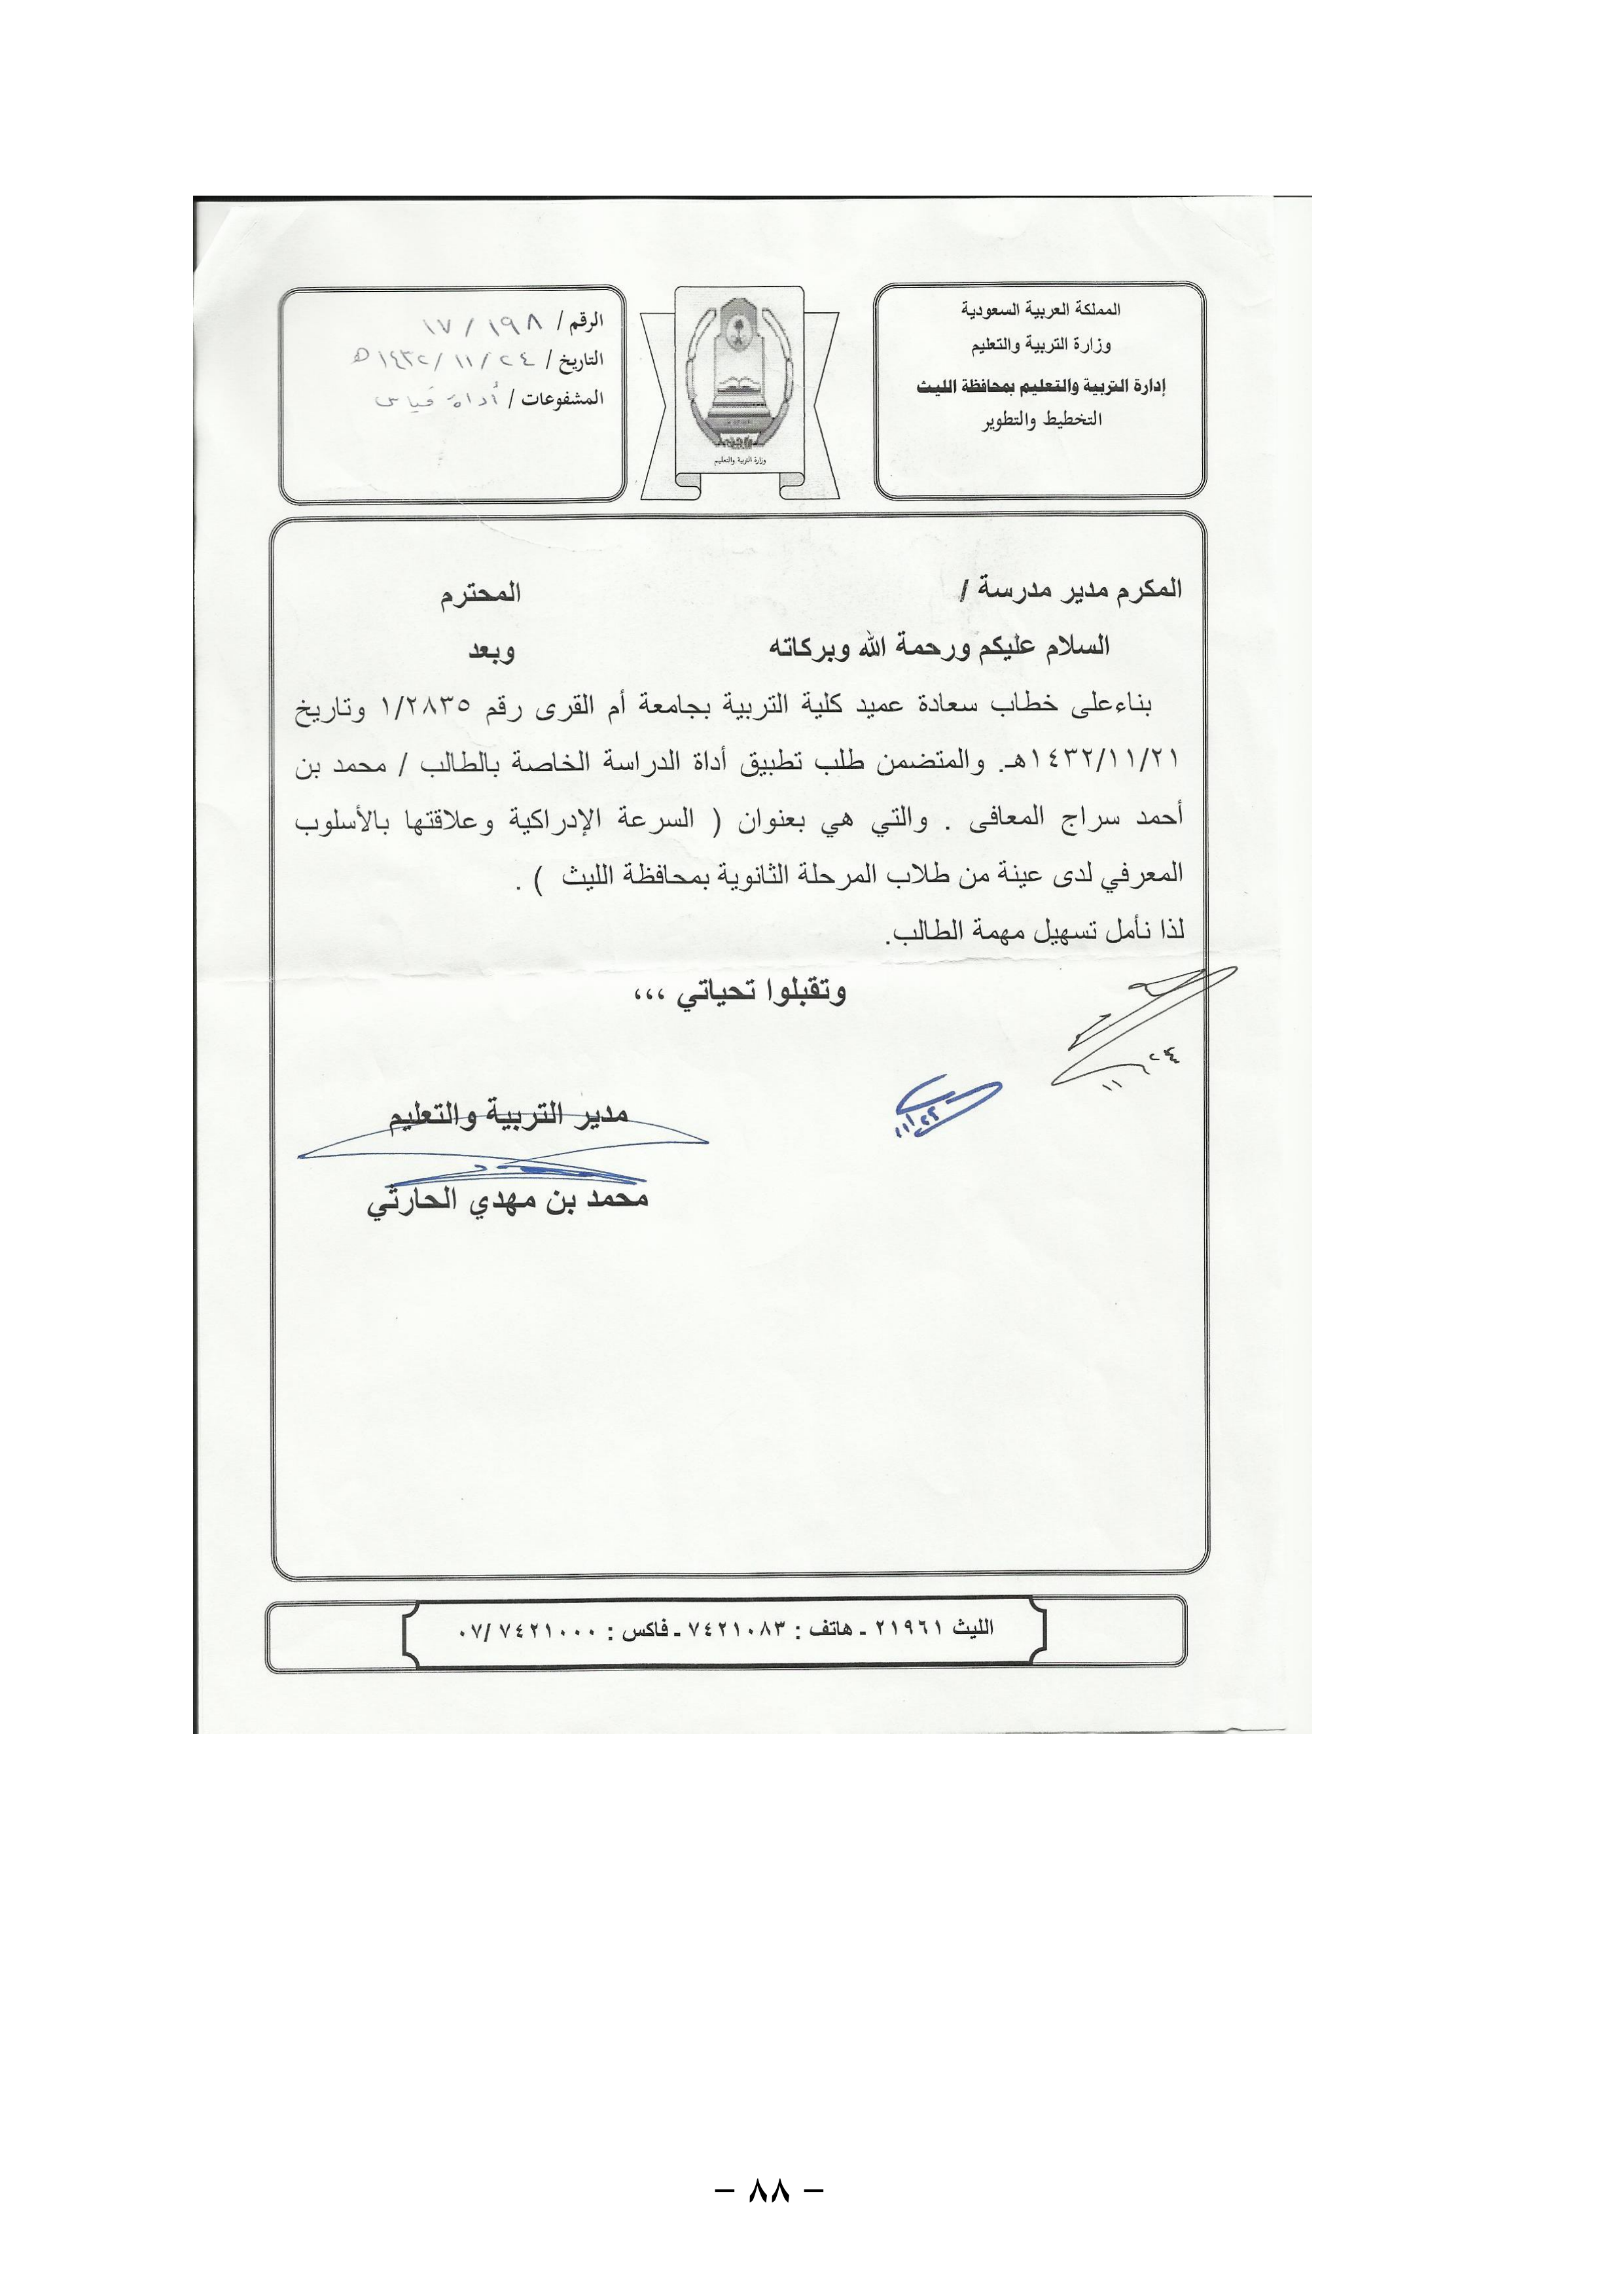 المملكة العربية السعودية
وزارة التربية والتعليم
إدارة التربية والتعليم بمحافظة الليث
التخطيط والتطوير
وزارة التربية والتعليم
الرقم / ١٩٨ / ١٧
التاريخ / ٢٤ / ١١ / ١٤٣٢ هـ
المشفوعات / أداة قياس
المكرم مدير مدرسة / المحترم
السلام عليكم ورحمة الله وبركاته وبعد
بناءعلى خطاب سعادة عميد كلية التربية بجامعة أم القرى رقم ١/٢٨٣٥ وتاريخ
١٤٣٢/١١/٢١هـ. والمتضمن طلب تطبيق أداة الدراسة الخاصة بالطالب / محمد بن
أحمد سراج المعافى . والتي هي بعنوان ( السرعة الإدراكية وعلاقتها بالأسلوب
المعرفي لدى عينة من طلاب المرحلة الثانوية بمحافظة الليث ) .
لذا نأمل تسهيل مهمة الطالب.
وتقبلوا تحياتي ،،،
٢٤ / ١١
مدير التربية والتعليم
محمد بن مهدي الحارثي
الليث ٢١٩٦١ ـ هاتف : ٧٤٢١٠٨٣ ـ فاكس : ٧٤٢١٠٠٠ /٠٧
– ٨٨ –